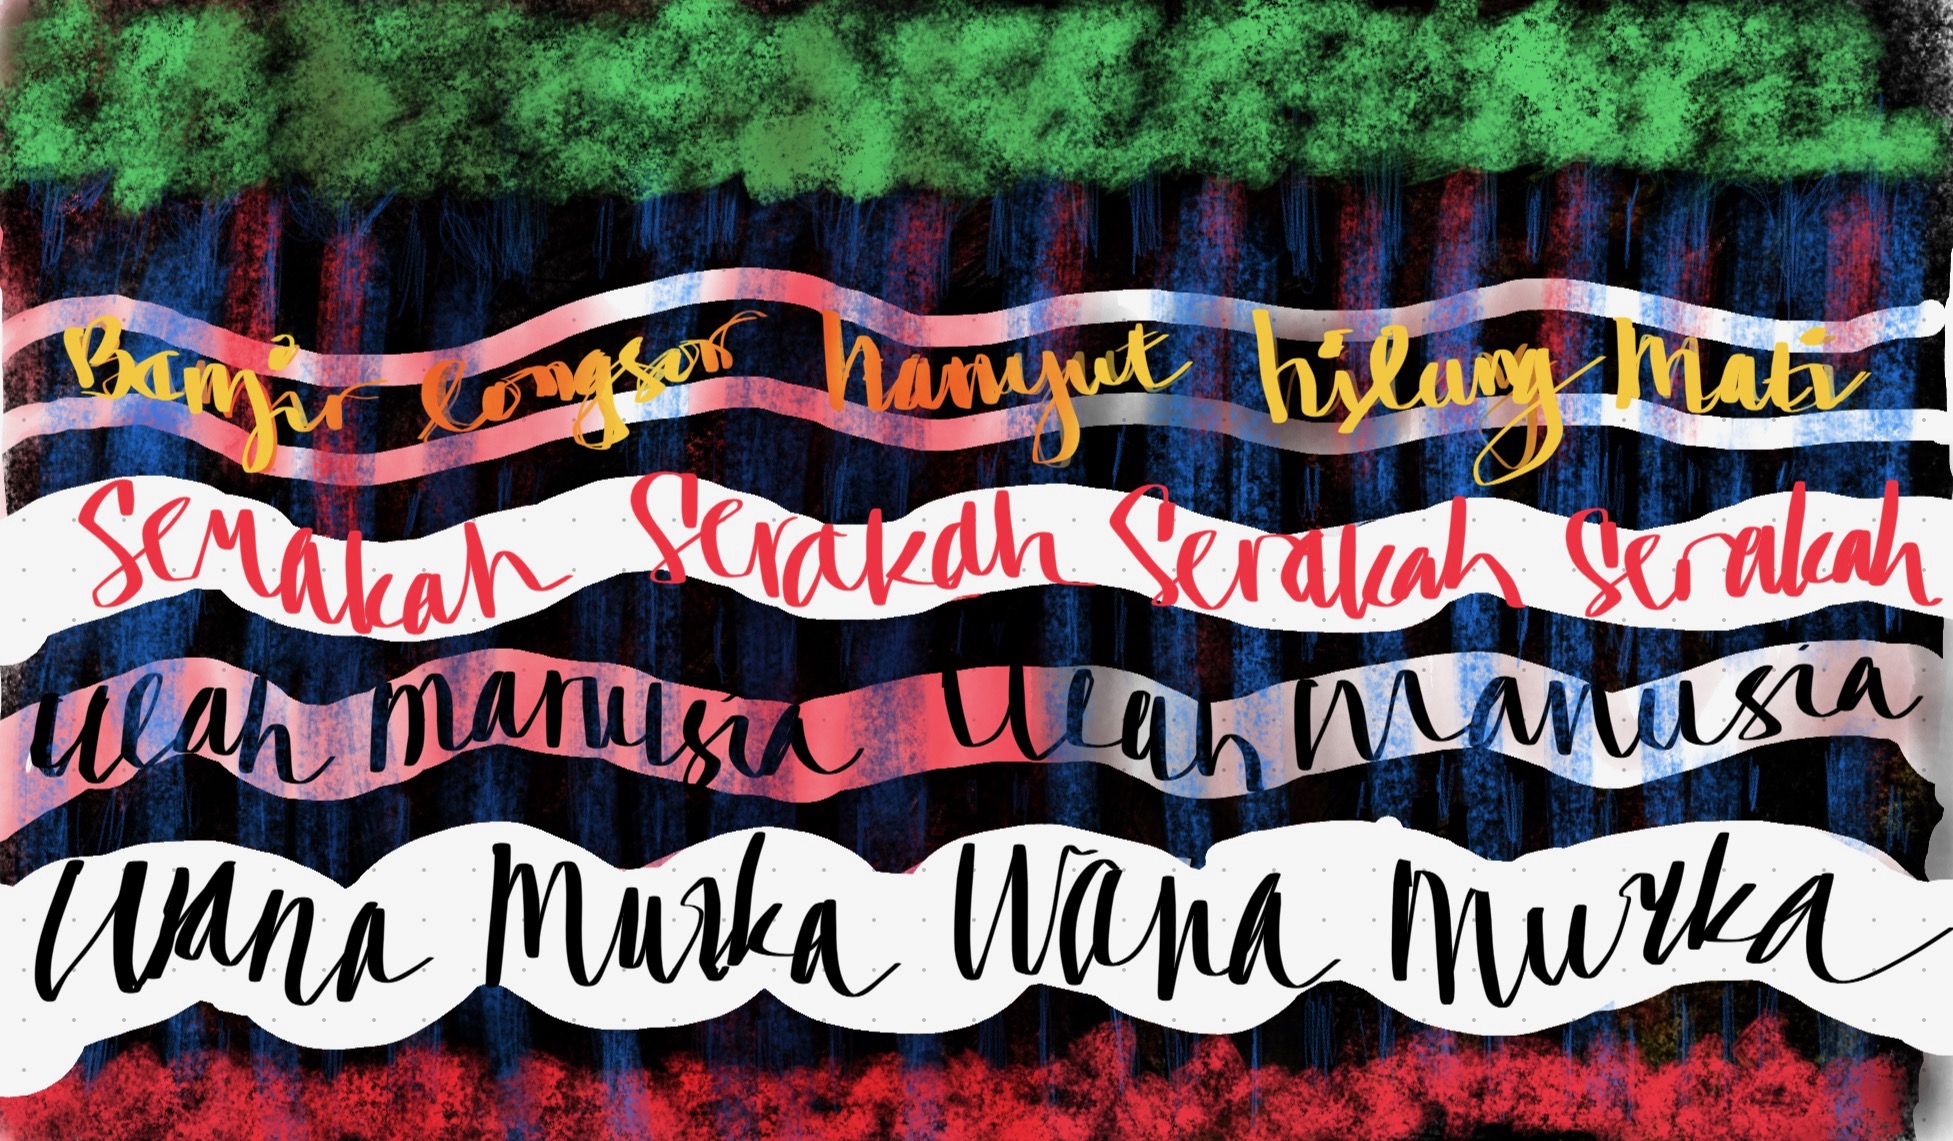 Banjir longsor hanyut hilang Mati
Serakah Serakah Serakah Serakah
Ulah manusia Ulah manusia
Wana Murka Wana Murka